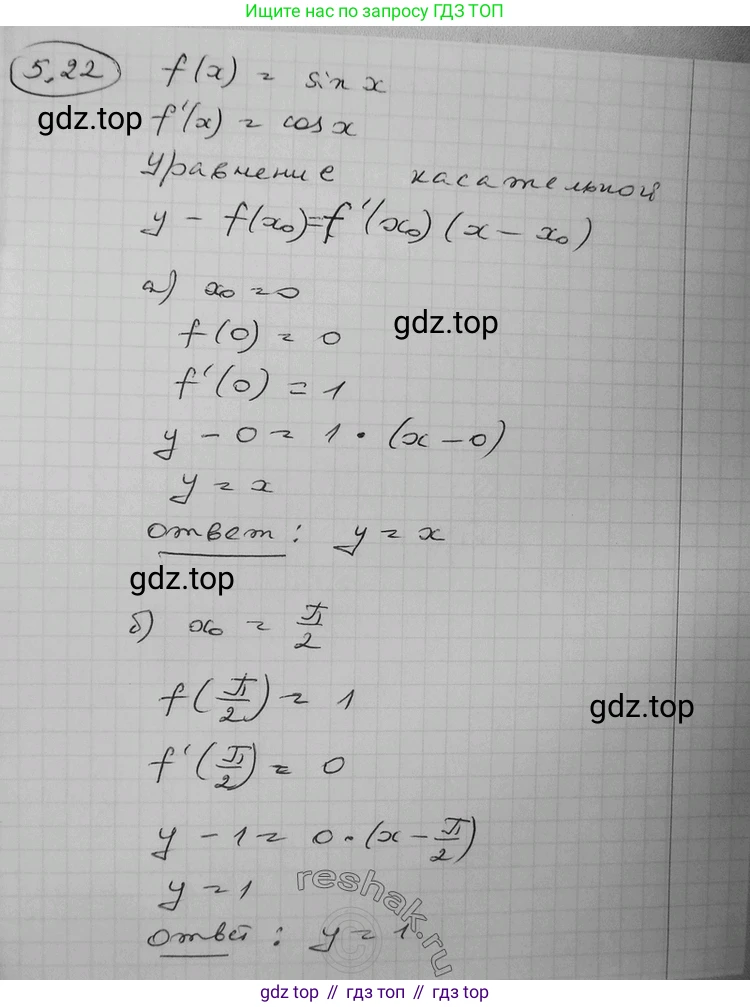 Підпишись на нас по запросу ГДЗ ТОП
5.22 f(x) = sin x
gdz.top f'(x) = cos x
Уравнение касательной
y - f(x₀) = f'(x₀) (x - x₀)
а) x₀ = 0
gdz.top
f(0) = 0
f'(0) = 1
y - 0 = 1 · (x - 0)
y = x
Ответ: y = x
gdz.top
б) x₀ = π/2
f(π/2) = 1
gdz.top
f'(π/2) = 0
y - 1 = 0 · (x - π/2)
y = 1
reshak.ru
Ответ: y = 1
gdz top // гдз топ // gdz top